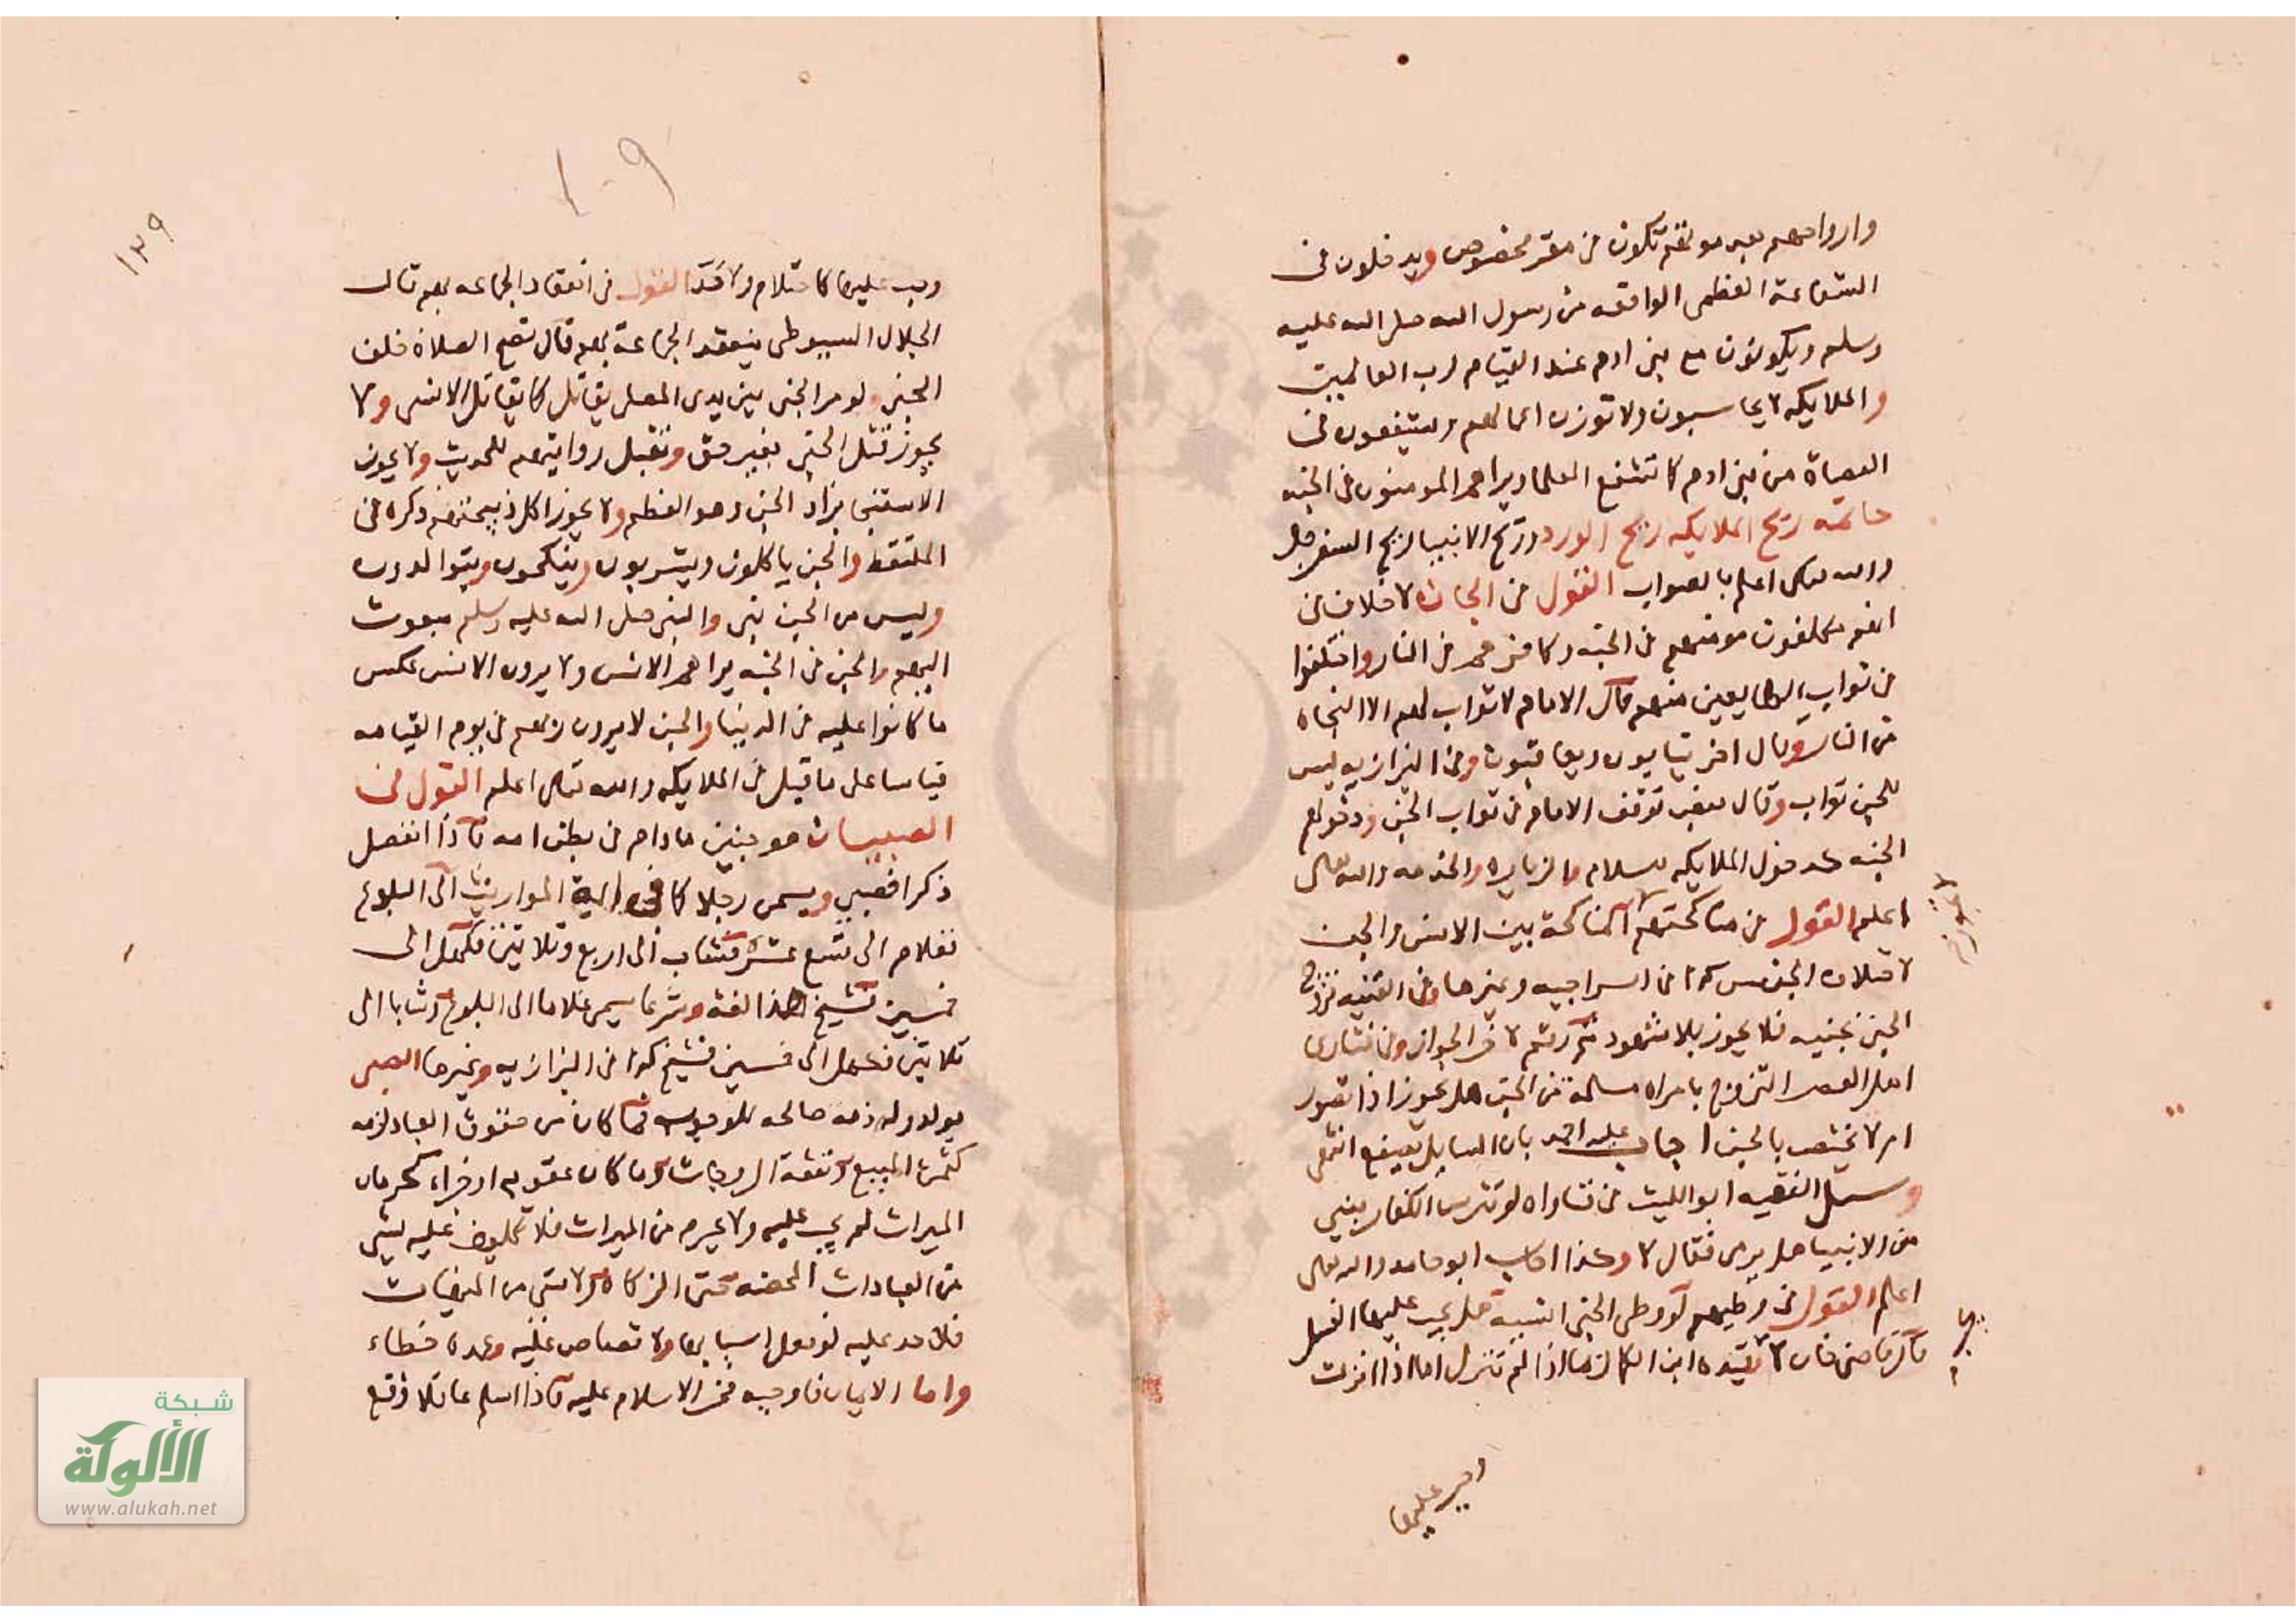 وارواحهم بعد موتهم تكون في مقر مخصوص ويدخلون في
الشفاعة العظمى الواقعه من رسول الله صلى الله عليه
وسلم ويكونون مع بني ادم عند القيام لرب العالمين
والملايكه لا يحاسبون ولا توزن اعمالهم ويشفعون في
العصاة من بني ادم كما تشفع العلما ويراهم المومنون في الجنه
خاتمه ريح الملايكه ريح الورد وريح الانبيا ريح السفرجل
والله تعالى اعلم بالصواب القول في الجان لا خلاف في
انهم مكلفون مومنهم في الجنه وكافرهم في النار واختلفوا
في ثواب الطايعين منهم قال الامام لا ثواب لهم الا النجاه
من النار وقال اخر يثابون ويعاقبون وفي البزازيه ليس
للجن ثواب وقال بعض توقف الامام في ثواب الجن ودخولهم
الجنه كدخول الملايكه للسلام والزياره والخدمه والله تعالى
اعلم القول في مناكحتهم المناكحة بين الانس والجن
لا تجوز
لاختلاف الجنس كذا في السراجيه وغيرها وفي القنيه تزوج
الجن بجنيه فلا يجوز بلا شهود ثم رقم لاخر الجواز وفي فتاوى
اهل العصر التزوج بامراه مسلمة من الجن هل يجوز اذا تصور
ام لا يختص بالجن اجاب علي احمد بان السايل يصفع انتهى
وسيل الفقيه ابو الليث في فتاواه لو تترس الكفار بنبي
من الانبيا هل يرمى فقال لا وكذا اجاب ابو حامد والله تعالى
اعلم القول في وطيهم لو وطى الجني انسية هل يجب عليها الغسل
قال قاضي خان لا قيده ابن الكمال بما اذا لم تنزل اما اذا انزلت
وجب عليها
وجب عليها كاحتلام ولا فرق القول في انعقاد الجماعه بهم قال
الجلال السيوطي ينعقد الجماعة بهم قال تصح الصلاة خلف
الجني ولو مر الجني بين يدي المصلي يقاتل كما يقاتل الانسي ولا
يجوز قتل الجني بغير حق وتقبل روايتهم للحديث ولا يجوز
الاستنجا بزاد الجن وهو العظم ولا يجوز اكل ذبيحتهم ذكره في
الملتقط والجن ياكلون ويشربون وينكحون ويتوالدون
وليس من الجن نبي والنبي صلى الله عليه وسلم مبعوث
اليهم والجن في الجنه يراهم الانس ولا يرون الانس عكس
ما كانوا عليه في الدنيا والجن لا يرون ربهم في يوم القيامه
قياسا على ما قيل في الملايكه والله تعالى اعلم القول في
الصبيان هو جنين مادام في بطن امه فاذا انفصل
ذكرا فصبي ويسمى رجلا كما في اية المواريث الى البلوغ
فغلام الى تسع عشر فشاب الى اربع وثلاثين فكهل الى
خمسين فشيخ هذا لغه وشرعا يسمى غلاما الى البلوغ وشابا الى
ثلاثين فكهل الى خمسين فشيخ كذا في البزازيه وغيرها الصبي
يولد وله ذمه صالحه للوجوب فما كان من حقوق العباد لزمه
كثمن المبيع ونفقة الزوجات وما كان عقوبه او جزاء كحرمان
الميراث لم يجب عليه ولا يحرم من الميراث فلا تكليف عليه بشي
من العبادات المحضه حتى الزكاه ولا شي من المنهيات
فلا حد عليه لو فعل اسبابها ولا قصاص عليه وعمده خطاء
واما الايمان فاوجبه فخر الاسلام عليه فاذا اسلم عاقلا وقع
١٠٩
١٣٩
شبكة
الألوكة
www.alukah.net